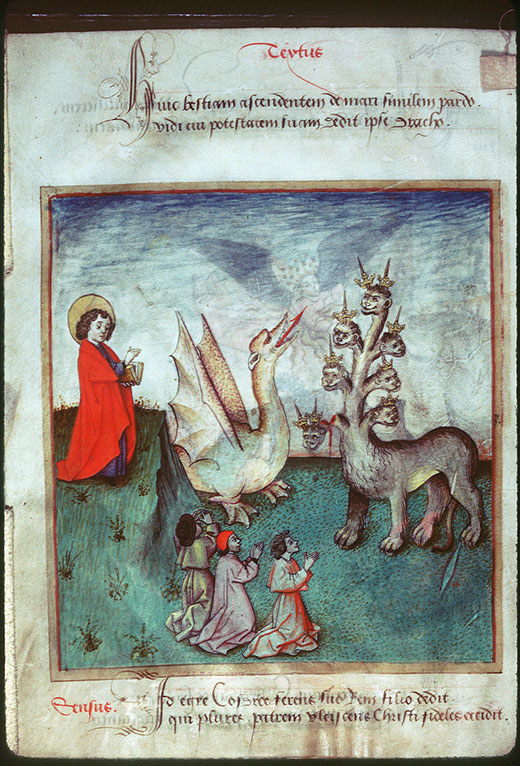 Textus
Huic bestiam ascendentem de mari similem pardo.
Vidi cui potestatem suam dedit ipse dracho.
Sensus. Id egre Cosdree ferens suo rem filio dedit.
qui plures patrem ulciscens Christi fideles cecidit.